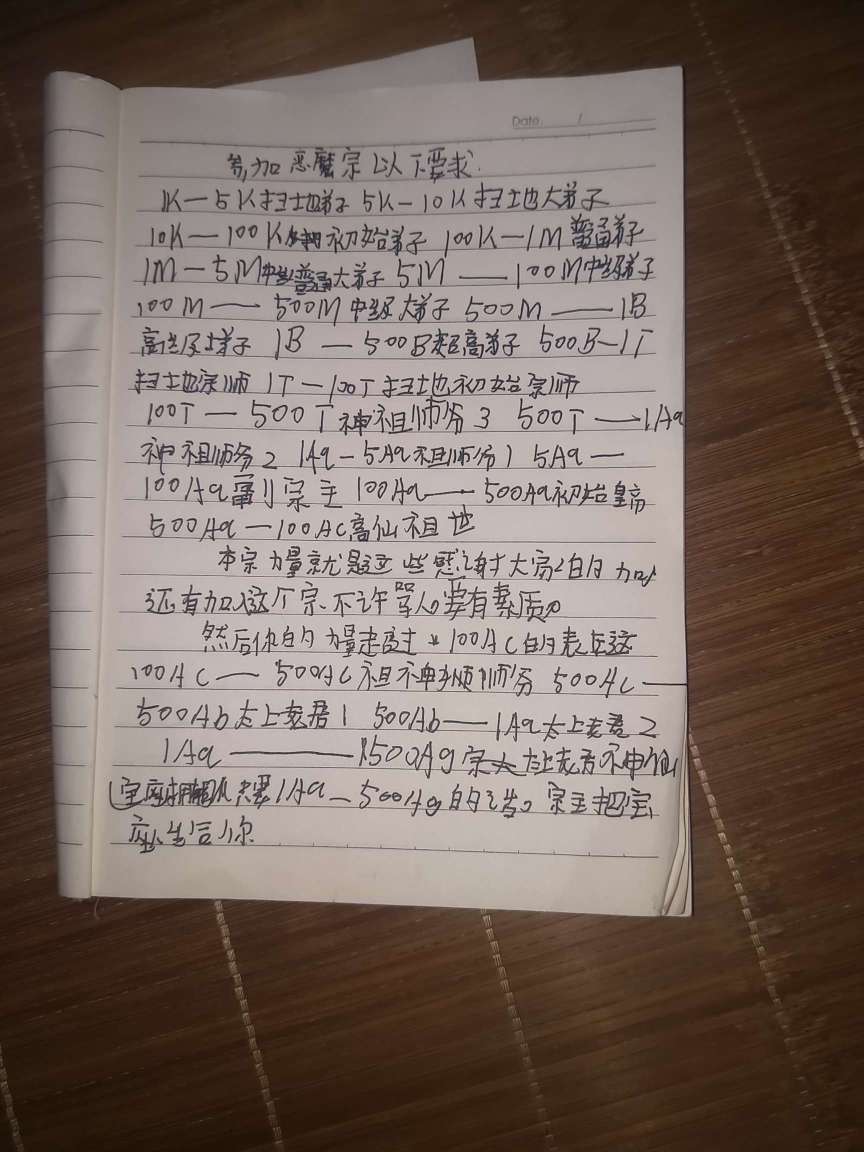 Date /
参加恶魔宗以下要求.
1K—5K扫地弟子 5K—10K扫地大弟子
10K—100K初始弟子 100K—1M普通弟子
1M—5M普通大弟子 5M——100M中级弟子
100M——500M中级大弟子 500M——1B
高级弟子 1B—500B超高弟子 500B—1T
扫地宗师 1T—100T扫地初始宗师
100T—500T神祖师爷3 500T——1Aa
神祖师爷2 1Aa—5Aa祖师爷1 5Aa—
100Aa副宗主 100Aa——500Aa初始皇帝
500Aa—100AC高仙祖地
本宗力量就是这些感谢大家的加入
还有加入这个宗不许骂人要有素质。
然后你的力量走过 100AC的表在这
100AC——500AC祖神师爷 500AC——
500Ab太上老君1 500Ab——1Aa太上老君2
1Aa————1500Ag宗太上老君神仙
(宝座 只要1Aa—500Ag的话。宗主把宝
座让给你